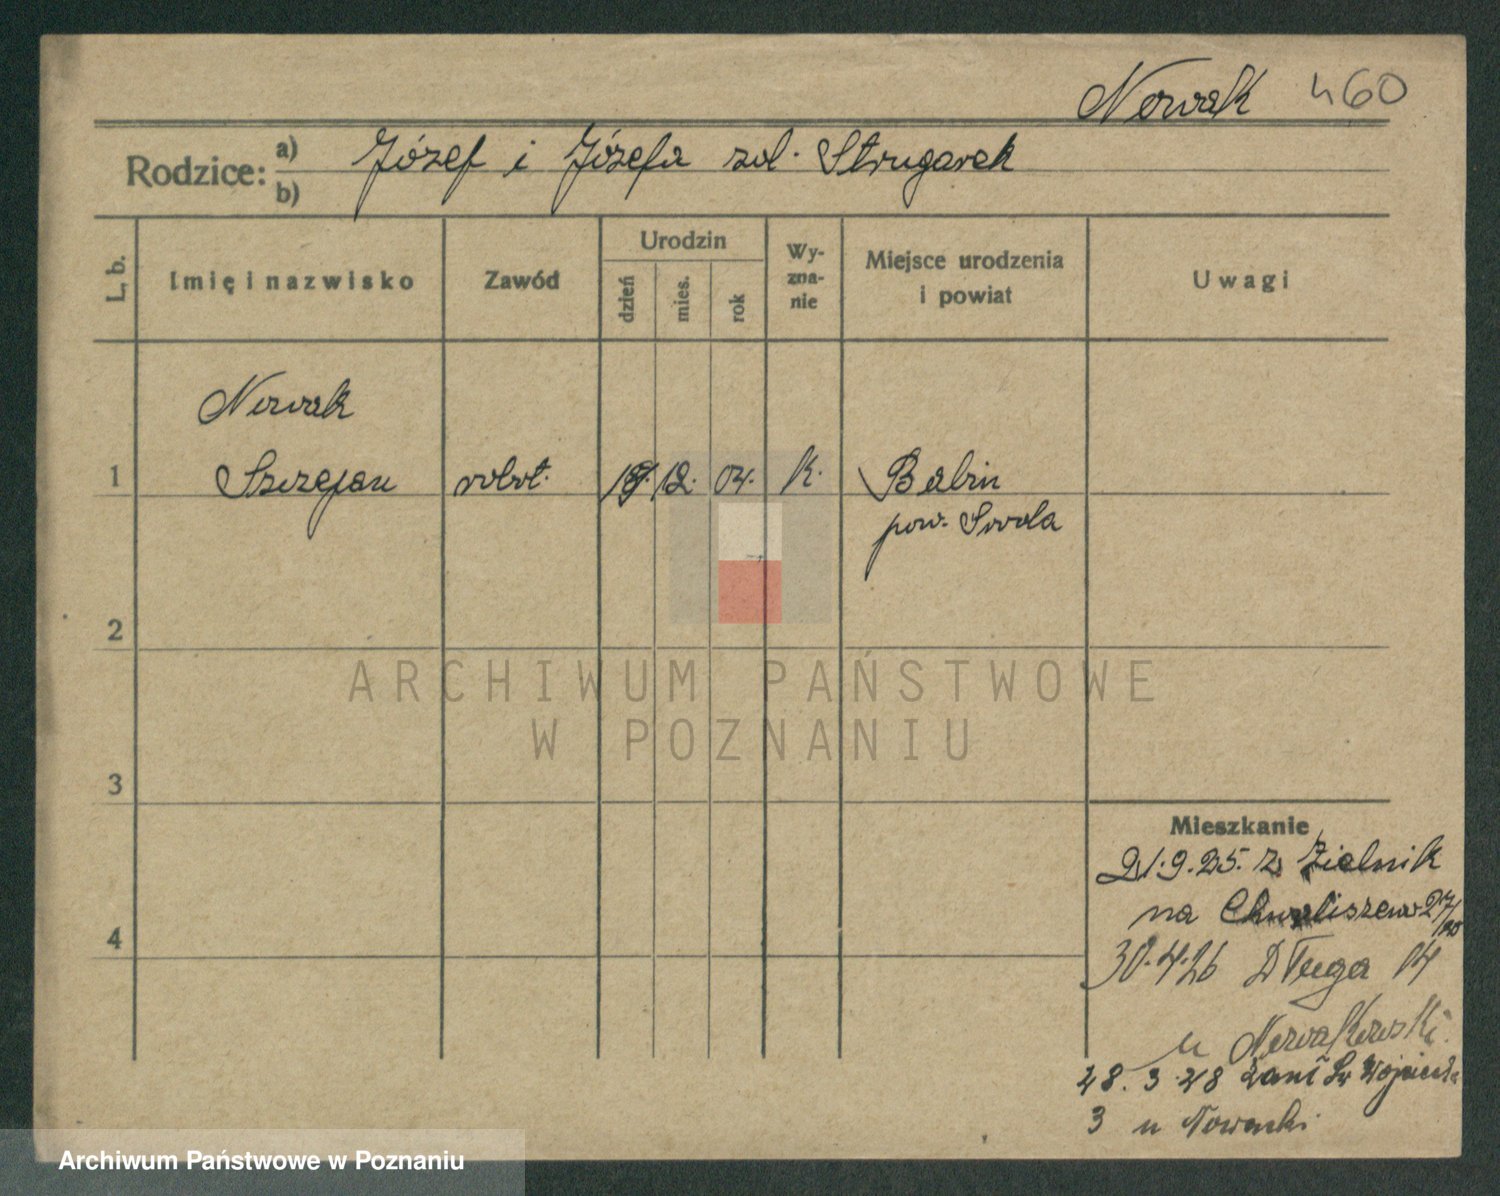 Nowak 460
Rodzice: a) Józef i Józefa zol. Strugarek
b)
L. b.
Imię i nazwisko
Zawód
Urodzin
dzień
mies.
rok
Wy-
zna-
nie
Miejsce urodzenia
i powiat
Uwagi
Nowak
1 Szczepan robot. 12. 04. K. Babin
pow. Szroda
2
3
4
Mieszkanie
21.9.25. z Zielnik
na Chwaliszewo 27/
30.4.26 Długa 14
u Nowakowski.
28.3.28 Św Wojciecha
3 u Nowacki
ARCHIWUM PAŃSTWOWE
W POZNANIU
Archiwum Państwowe w Poznaniu